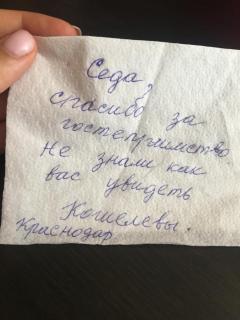 Седа,
спасибо за
гостеприимство
Не знали как
вас увидеть
Кошелевы.
Краснодар